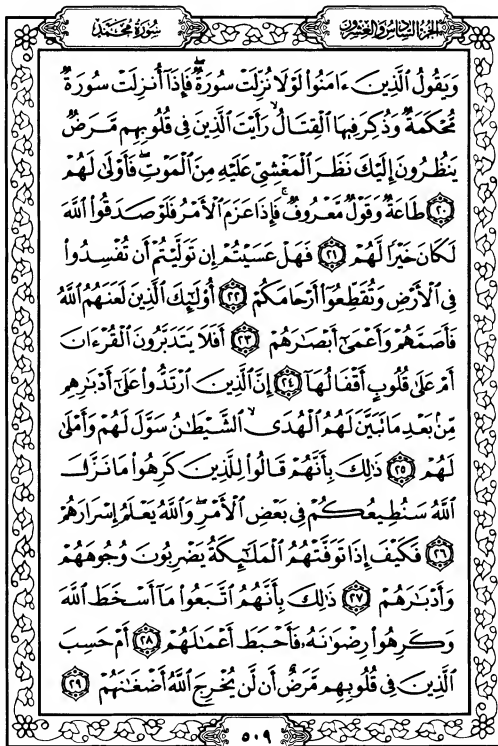 الجزء السادس والعشرون
سورة محمد
وَيَقُولُ ٱلَّذِينَ ءَامَنُوا۟ لَوْلَا نُزِّلَتْ سُورَةٌ ۖ فَإِذَآ أُنزِلَتْ سُورَةٌ
مُّحْكَمَةٌ وَذُكِرَ فِيهَا ٱلْقِتَالُ ۙ رَأَيْتَ ٱلَّذِينَ فِى قُلُوبِهِم مَّرَضٌ
يَنظُرُونَ إِلَيْكَ نَظَرَ ٱلْمَغْشِىِّ عَلَيْهِ مِنَ ٱلْمَوْتِ ۖ فَأَوْلَىٰ لَهُمْ
٢٠ طَاعَةٌ وَقَوْلٌ مَّعْرُوفٌ ۚ فَإِذَا عَزَمَ ٱلْأَمْرُ فَلَوْ صَدَقُوا۟ ٱللَّهَ
لَكَانَ خَيْرًا لَّهُمْ ٢١ فَهَلْ عَسَيْتُمْ إِن تَوَلَّيْتُمْ أَن تُفْسِدُوا۟
فِى ٱلْأَرْضِ وَتُقَطِّعُوٓا۟ أَرْحَامَكُمْ ٢٢ أُو۟لَـٰٓئِكَ ٱلَّذِينَ لَعَنَهُمُ ٱللَّهُ
فَأَصَمَّهُمْ وَأَعْمَىٰٓ أَبْصَـٰرَهُمْ ٢٣ أَفَلَا يَتَدَبَّرُونَ ٱلْقُرْءَانَ
أَمْ عَلَىٰ قُلُوبٍ أَقْفَالُهَآ ٢٤ إِنَّ ٱلَّذِينَ ٱرْتَدُّوا۟ عَلَىٰٓ أَدْبَـٰرِهِم
مِّنۢ بَعْدِ مَا تَبَيَّنَ لَهُمُ ٱلْهُدَى ۙ ٱلشَّيْطَـٰنُ سَوَّلَ لَهُمْ وَأَمْلَىٰ
لَهُمْ ٢٥ ذَٰلِكَ بِأَنَّهُمْ قَالُوا۟ لِلَّذِينَ كَرِهُوا۟ مَا نَزَّلَ
ٱللَّهُ سَنُطِيعُكُمْ فِى بَعْضِ ٱلْأَمْرِ ۖ وَٱللَّهُ يَعْلَمُ إِسْرَارَهُمْ
٢٦ فَكَيْفَ إِذَا تَوَفَّتْهُمُ ٱلْمَلَـٰٓئِكَةُ يَضْرِبُونَ وُجُوهَهُمْ
وَأَدْبَـٰرَهُمْ ٢٧ ذَٰلِكَ بِأَنَّهُمُ ٱتَّبَعُوا۟ مَآ أَسْخَطَ ٱللَّهَ
وَكَرِهُوا۟ رِضْوَٰنَهُۥ فَأَحْبَطَ أَعْمَـٰلَهُمْ ٢٨ أَمْ حَسِبَ
ٱلَّذِينَ فِى قُلُوبِهِم مَّرَضٌ أَن لَّن يُخْرِجَ ٱللَّهُ أَضْغَـٰنَهُمْ ٢٩
٥٠٩